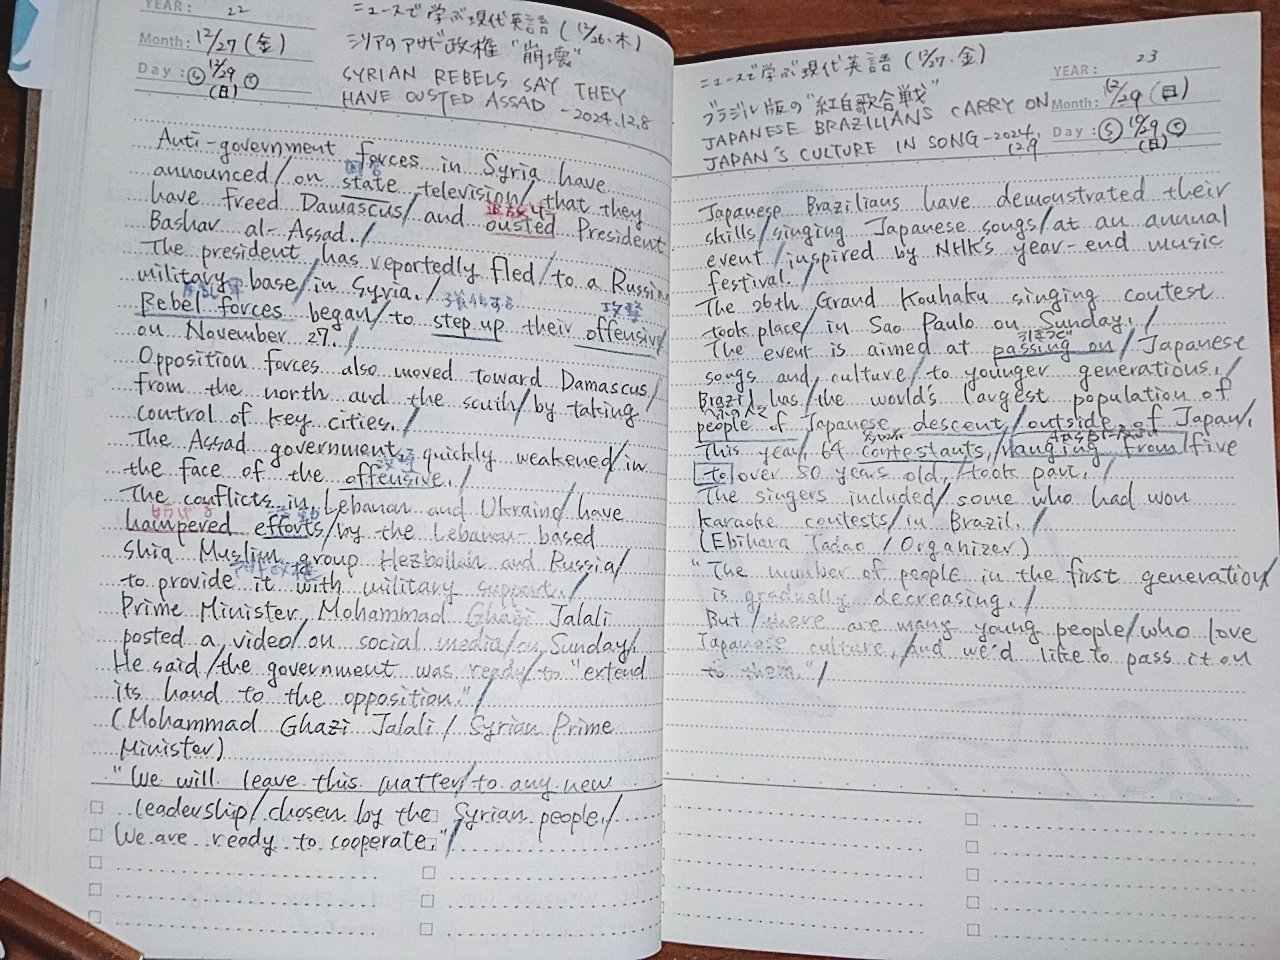 YEAR: 22
Month: 12/27(金)
Day: Ⓢ 12/29 ©
(日)
ニュースで学ぶ現代英語(12/26・木)
シリアのアサド政権"崩壊"
SYRIAN REBELS SAY THEY
HAVE OUSTED ASSAD -2024.12.8
Anti-government forces in Syria have
国営
announced/on state television/that they
追放する
have freed Damascus/and ousted President
Bashar al-Assad./
The president has reportedly fled/to a Russian
military base/in Syria./
反乱軍 強化する 攻撃
Rebel forces began/to step up their offensive/
on November 27./
Opposition forces also moved toward Damascus/
from the north and the south/by taking
control of key cities./
The Assad government quickly weakened/in
攻撃
the face of the offensive./
The conflicts in Lebanon and Ukraine/have
妨げる
hampered efforts/by the Lebanon-based
Shia Muslim group Hezbollah and Russia/
to provide it with military support./
Prime Minister Mohammad Ghazi Jalali
posted a video/on social media/on Sunday/.
He said/the government was ready/to "extend
its hand to the opposition."/
(Mohammad Ghazi Jalali/Syrian Prime
Minister)
"We will leave this matter/to any new
leadership/chosen by the Syrian people./
We are ready to cooperate."/
ニュースで学ぶ現代英語(12/27・金)
ブラジル版の"紅白歌合戦"
JAPANESE BRAZILIANS CARRY ON
JAPAN'S CULTURE IN SONG -2024.
12.9
YEAR: 23
Month: 12/29(日)
Day: Ⓢ 12/29 ©
(日)
Japanese Brazilians have demonstrated their
skills/singing Japanese songs/at an annual
event/inspired by NHK's year-end music
festival./
The 26th Grand Kouhaku singing contest
took place/in Sao Paulo on Sunday./
引きつぐ
The event is aimed at passing on/Japanese
songs and culture/to younger generations./
Brazil has/the world's largest population of
people of Japanese descent/outside of Japan/.
This year/64 contestants,/ranging from five
to over 50 years old,/took part./
The singers included/some who had won
karaoke contests/in Brazil./
(Ebihara Tadao/Organizer)
"The number of people in the first generation/
is gradually decreasing./
But/there are many young people/who love
Japanese culture,/and we'd like to pass it on
to them."/